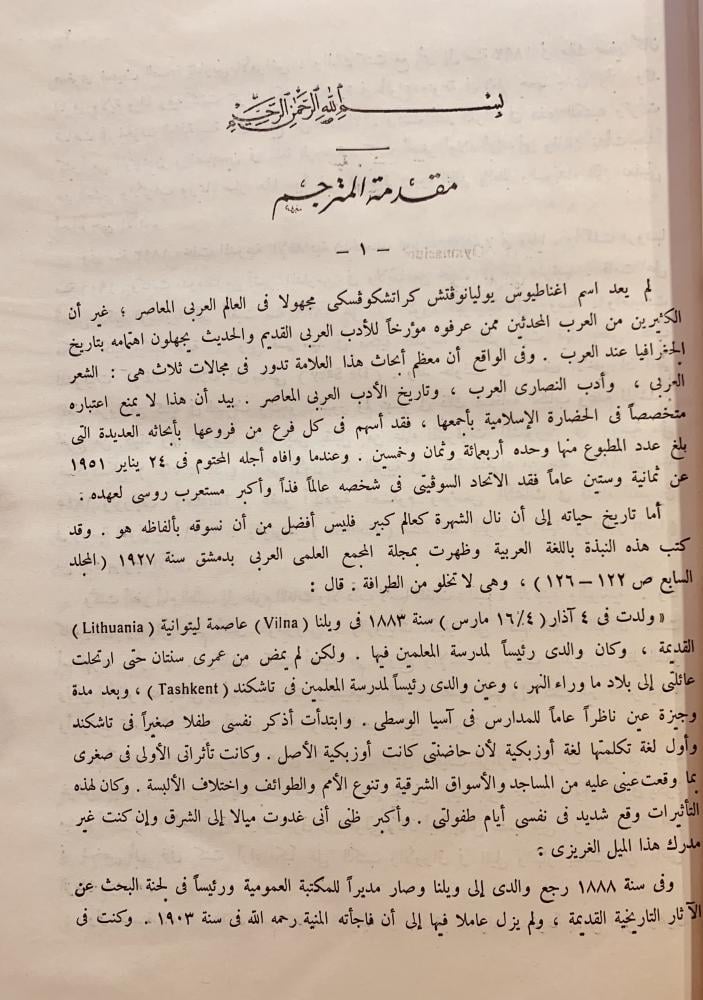 بسم الله الرحمن الرحيم
مقدمة المترجم
– ١ –
لم يعد اسم اغناطيوس يوليانوڤتش كراتشكوڤسكى مجهولا فى العالم العربى المعاصر ؛ غير أن
الكثيرين من العرب المحدثين ممن عرفوه مؤرخاً للأدب العربى القديم والحديث يجهلون اهتمامه بتاريخ
الجغرافيا عند العرب . وفى الواقع أن معظم أبحاث هذا العلامة تدور فى مجالات ثلاث هى : الشعر
العربى ، وأدب النصارى العرب ، وتاريخ الأدب العربى المعاصر . بيد أن هذا لا يمنع اعتباره
متخصصاً فى الحضارة الإسلامية بأجمعها ، فقد أسهم فى كل فرع من فروعها بأبحاثه العديدة التى
بلغ عدد المطبوع منها وحده أربعمائة وثمان وخمسين . وعندما وافاه أجله المحتوم فى ٢٤ يناير ١٩٥١
عن ثمانية وستين عاماً فقد الاتحاد السوڤيتى فى شخصه عالماً فذاً وأكبر مستعرب روسى لعهده .
أما تاريخ حياته إلى أن نال الشهرة كعالم كبير فليس أفضل من أن نسوقه بألفاظه هو . وقد
كتب هذه النبذة باللغة العربية وظهرت بمجلة المجمع العلمى العربى بدمشق سنة ١٩٢٧ ( المجلد
السابع ص ١٢٢ – ١٢٦ ) ، وهى لا تخلو من الطرافة . قال :
« ولدت فى ٤ آذار ( ١٦/٤ مارس ) سنة ١٨٨٣ فى ويلنا ( Vilna ) عاصمة ليتوانية ( Lithuania )
القديمة ، وكان والدى رئيساً لمدرسة المعلمين فيها . ولكن لم يمض من عمرى سنتان حتى ارتحلت
عائلتى إلى بلاد ما وراء النهر ، وعين والدى رئيساً لمدرسة المعلمين فى تاشكند ( Tashkent ) ، وبعد مدة
وجيزة عين ناظراً عاماً للمدارس فى آسيا الوسطى . وابتدأت أذكر نفسى طفلا صغيراً فى تاشكند
وأول لغة تكلمتها لغة أوزبكية لأن حاضنتى كانت أوزبكية الأصل . وكانت تأثراتى الأولى فى صغرى
بما وقعت عينى عليه من المساجد والأسواق الشرقية وتنوع الأمم والطوائف واختلاف الألبسة . وكان لهذه
التأثيرات وقع شديد فى نفسى أيام طفولتى . وأكبر ظنى أنى غدوت ميالا إلى الشرق وإن كنت غير
مدرك هذا الميل الغريزى .
وفى سنة ١٨٨٨ رجع والدى إلى ويلنا وصار مديراً للمكتبة العمومية ورئيساً فى لجنة البحث عن
الآثار التاريخية القديمة ، ولم يزل عاملا فيها إلى أن فاجأته المنية رحمه الله فى سنة ١٩٠٣ . وكنت فى